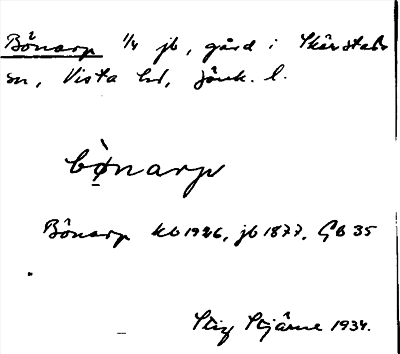 Bönarp 1/4 jb, gård i Skärstads
sn, Vista hd, Jönk. l.
bö̀narp
Bönarp kb 1926, jb 1877, GB 35
Stig Stjärne 1934.